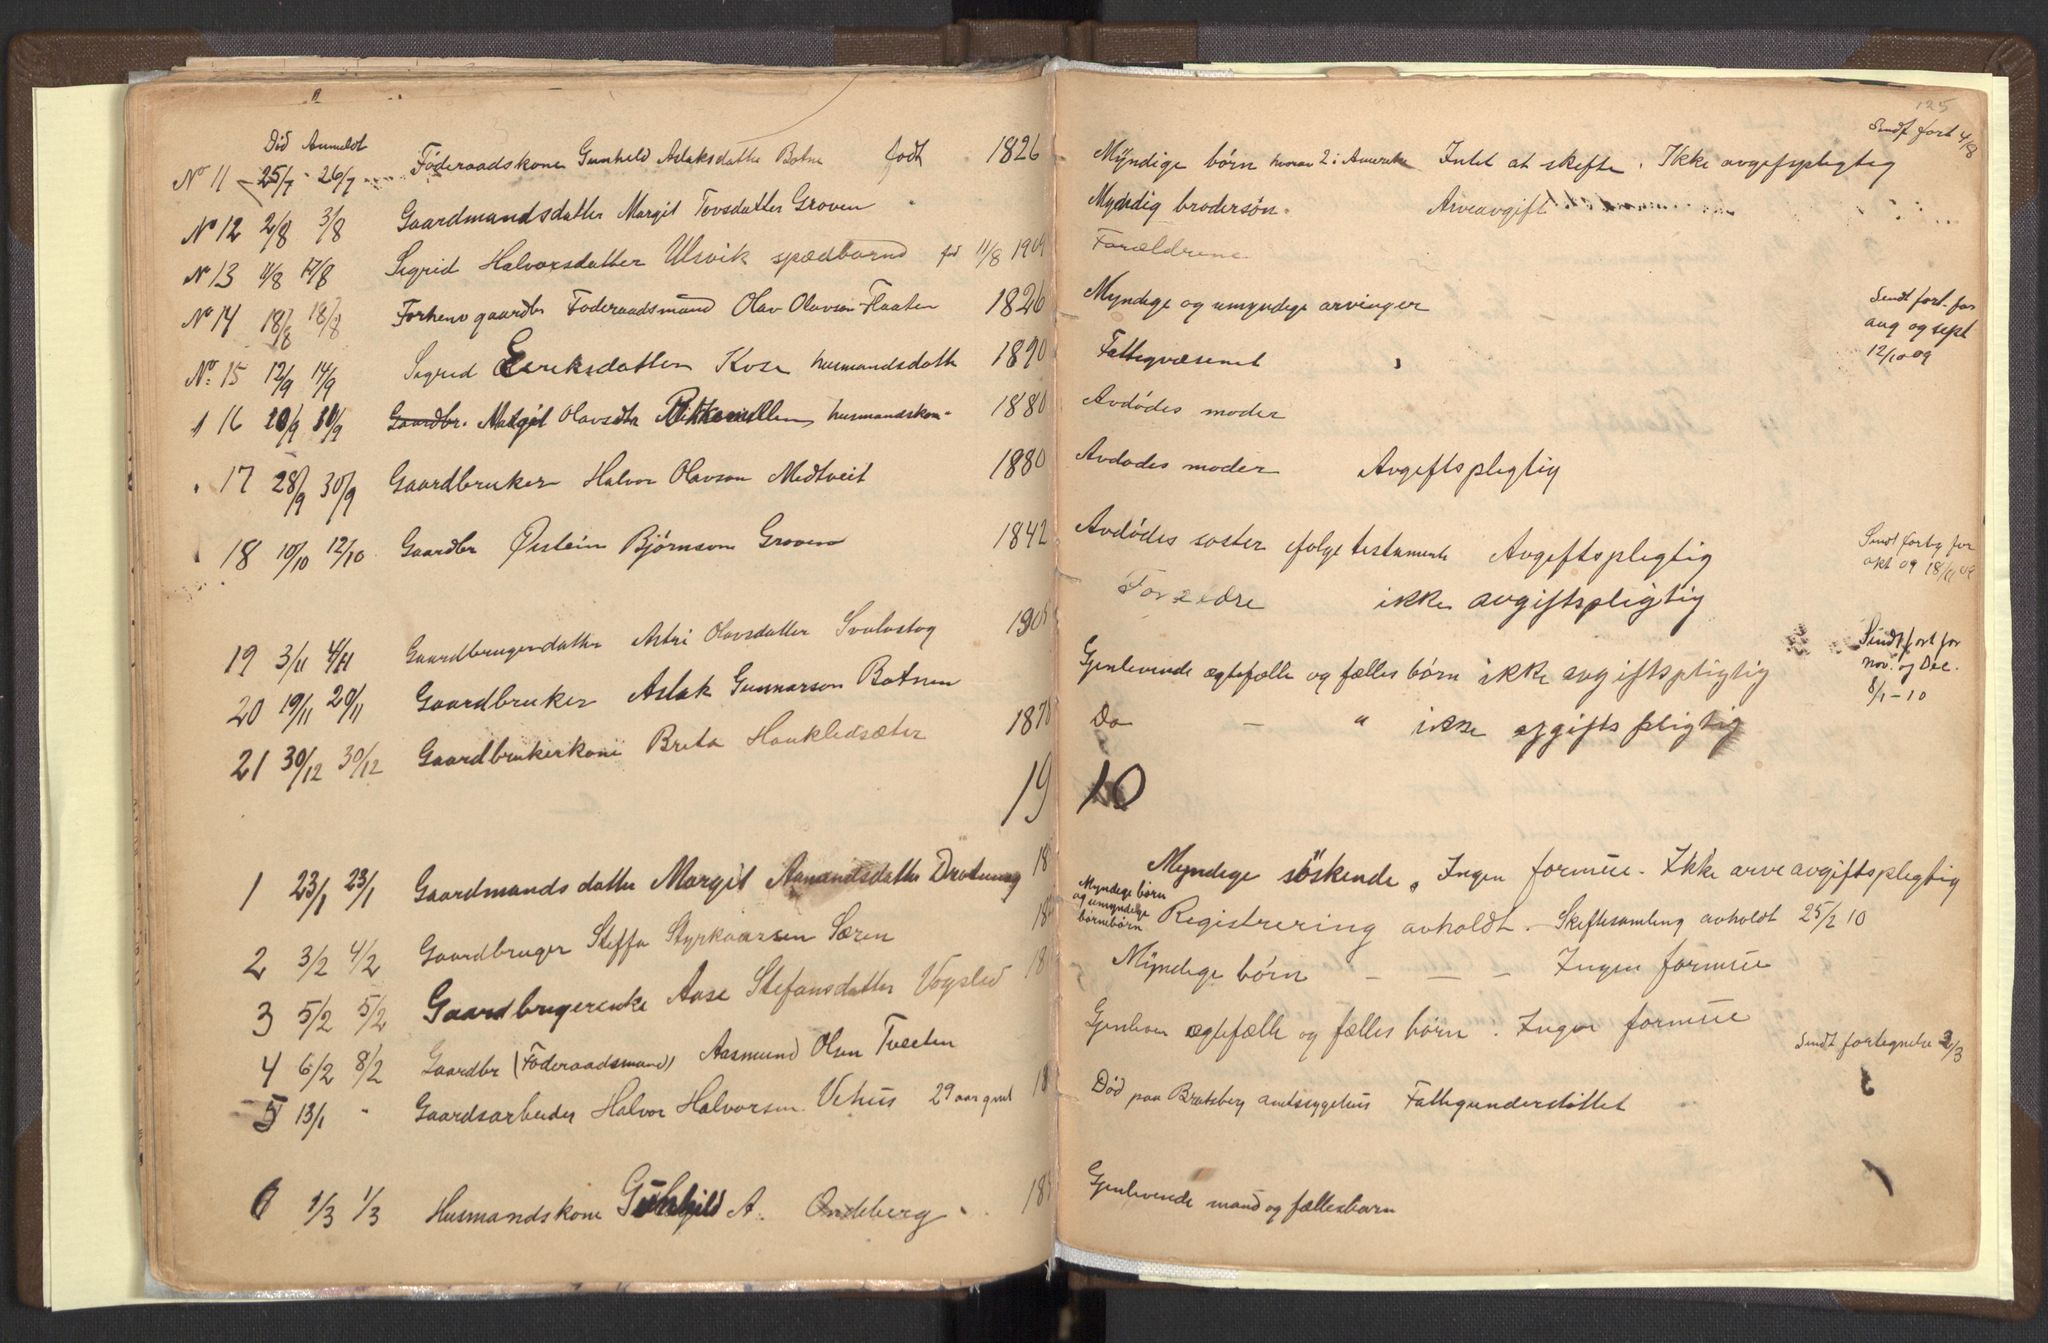 125
Død Anmeldt
Sendt fort 4/8
No 11 25/7 - 26/7 Føderaadskone Gunhild Aslaksdatter Botne født 1826 Myndige børn hvorav 2 i Amerika Intet at skifte. Ikke avgiftspligtig
No 12 2/8 3/8 Gaardmandsdatter Margit Tovsdatter Groven Myndig brodersøn. Arveavgift
No 13 11/8 17/8 Sigrid Halvorsdatter Ulsvik spædbarnd fød 11/8 1909 Forældrene
No 14 18/8 18/8 Forhenv gaardbr Føderaadsmand Olav Olavson Flaaten 1826 Myndige og umyndige arvinger
Sendt fort. for
aug og sept
12/10 09
No. 15 12/9 14/9 Sigrid Eeriksdatter Kose husmandsdatte 1890 Fattigvæsenet
16 10/9 30/9 Gaardbr. Margit Olavsdtr husmandskone 1880 Avdødes moder
17 28/9 30/9 Gaardbruker Halvor Olavson Medtveit 1880 Avdødes moder Avgiftspligtig
18 10/10 12/10 Gaardbr Østein Bjørnson Groven 1842 Avdødes søster ifølge testamente Avgiftspligtig
Sendt fortg for
okt 09 18/11 09
19 3/11 4/11 Gaardbrugerdatter Astri Olavsdatter Svalastog 190 Forældre ikke avgiftspligtig
20 19/11 20/11 Gaardbruker Aslak Gunnarson Botnen Gjenlevende ægtefælle og fælles børn ikke avgiftspligtig
Sendt fort for
nov. og Dec.
8/1-10
21 30/12 30/12 Gaardbrukerkone Breta Haukledsæter 187 Do - " ikke afgiftspligtig
1910
1 23/1 23/1 Gaardmandsdatter Margit Aamandsdatter 18 Myndige søskende. Ingen formue. Ikke arveavgiftspligtig
Myndige børn
og umyndige
børnebørn
2 3/2 4/2 Gaardbruger Steffa Styrkaarsen Særen 18 Registrering avholdt. Skiftesamling avholdt 25/2 10
3 5/2 5/2 Gaardbrugerenke Aase Stefansdatter Vogslid 18 Myndige børn - - - Ingen formue
4 6/2 8/2 Gaardbr (Føderaadsmand) Aasmund Olsen Tveiten Gjenleven ægtefælle og fælles børn. Ingen formue
Sendt fortegnelse 2/3
5 13/1 " Gaardsarbeider Halvor Halvorsen Vehus 29 aar gml 18 Død paa Bratsberg amtssygehus Fattigunderstøttet
6 1/3 1/3 Husmandskone Gunhild A. Ondeberg 18 Gjenlevende mand og fællesbarn